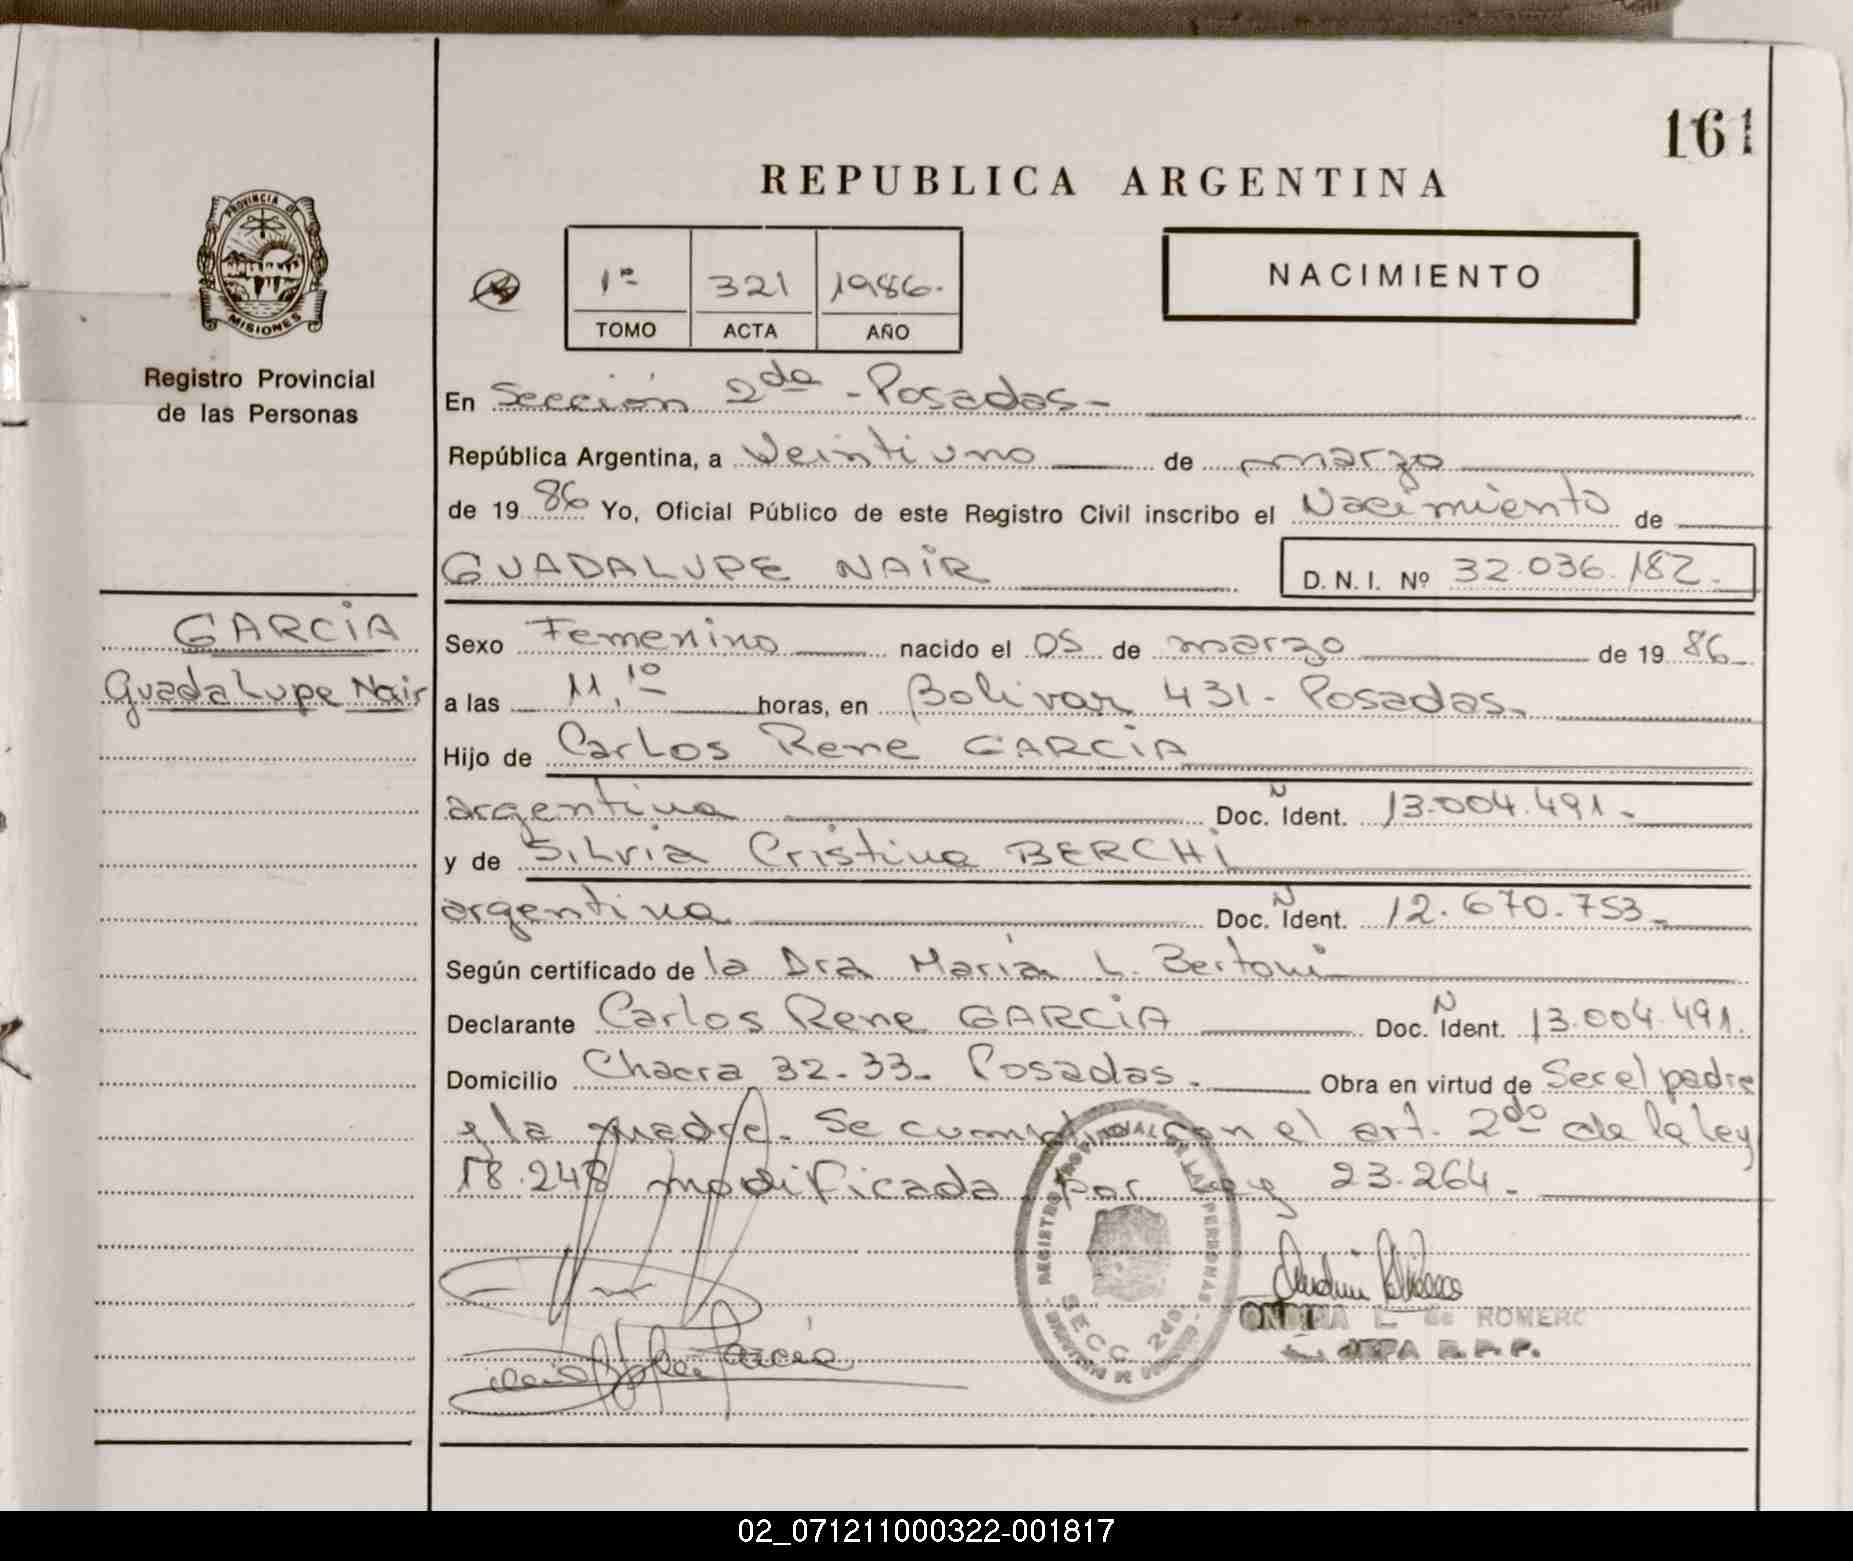 161
REPUBLICA ARGENTINA
PROVINCIA DE
MISIONES
Registro Provincial
de las Personas
1º 321 1986.
TOMO ACTA AÑO
NACIMIENTO
En Sección 2da - Posadas -
República Argentina, a Veintiuno de marzo
de 1986 Yo, Oficial Público de este Registro Civil inscribo el Nacimiento de
GUADALUPE NAIR D. N. I. Nº 32.036.182.
GARCIA
Guadalupe Nair
Sexo Femenino nacido el 05 de marzo de 1986
a las 11,10 horas, en Bolivar 431 - Posadas.
Hijo de Carlos Rene GARCIA
argentina Doc. N Ident. 13.004.491.-
y de Silvia Cristina BERCHI
argentina Doc. N Ident. 12.670.753.-
Según certificado de la Dra Maria L. Bertoni
Declarante Carlos Rene GARCIA Doc. N Ident. 13.004.491.
Domicilio Chacra 32-33- Posadas. Obra en virtud de Ser el padre
y la madre. Se cumple con el art. 2do de la ley
18.248 modificada por Ley 23.264.-
REGISTRO PROVINCIAL DE LAS PERSONAS
SECC. 2da
ONDINA L. de ROMERO
JEFA R.P.P.
02_071211000322-001817